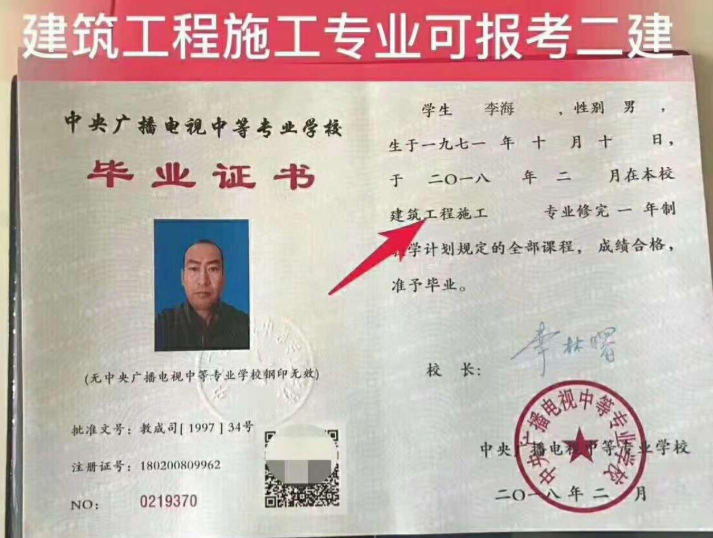 建筑工程施工专业可报考二建
中央广播电视中等专业学校
毕业证书
(无中央广播电视中等专业学校钢印无效)
批准文号：教成司[1997]34号
注册证号：180200809962
NO: 0219370
学生 李海 ，性别 男 ，
生于一九七一 年 十 月 十 日，
于 二〇一八 年 二 月在本校
建筑工程施工 专业修完 一 年制
学计划规定的全部课程，成绩合格，
准予毕业。
校 长：
中央广播电视中等专业学校
二〇一八年二月
中央广播电视中等专业学校